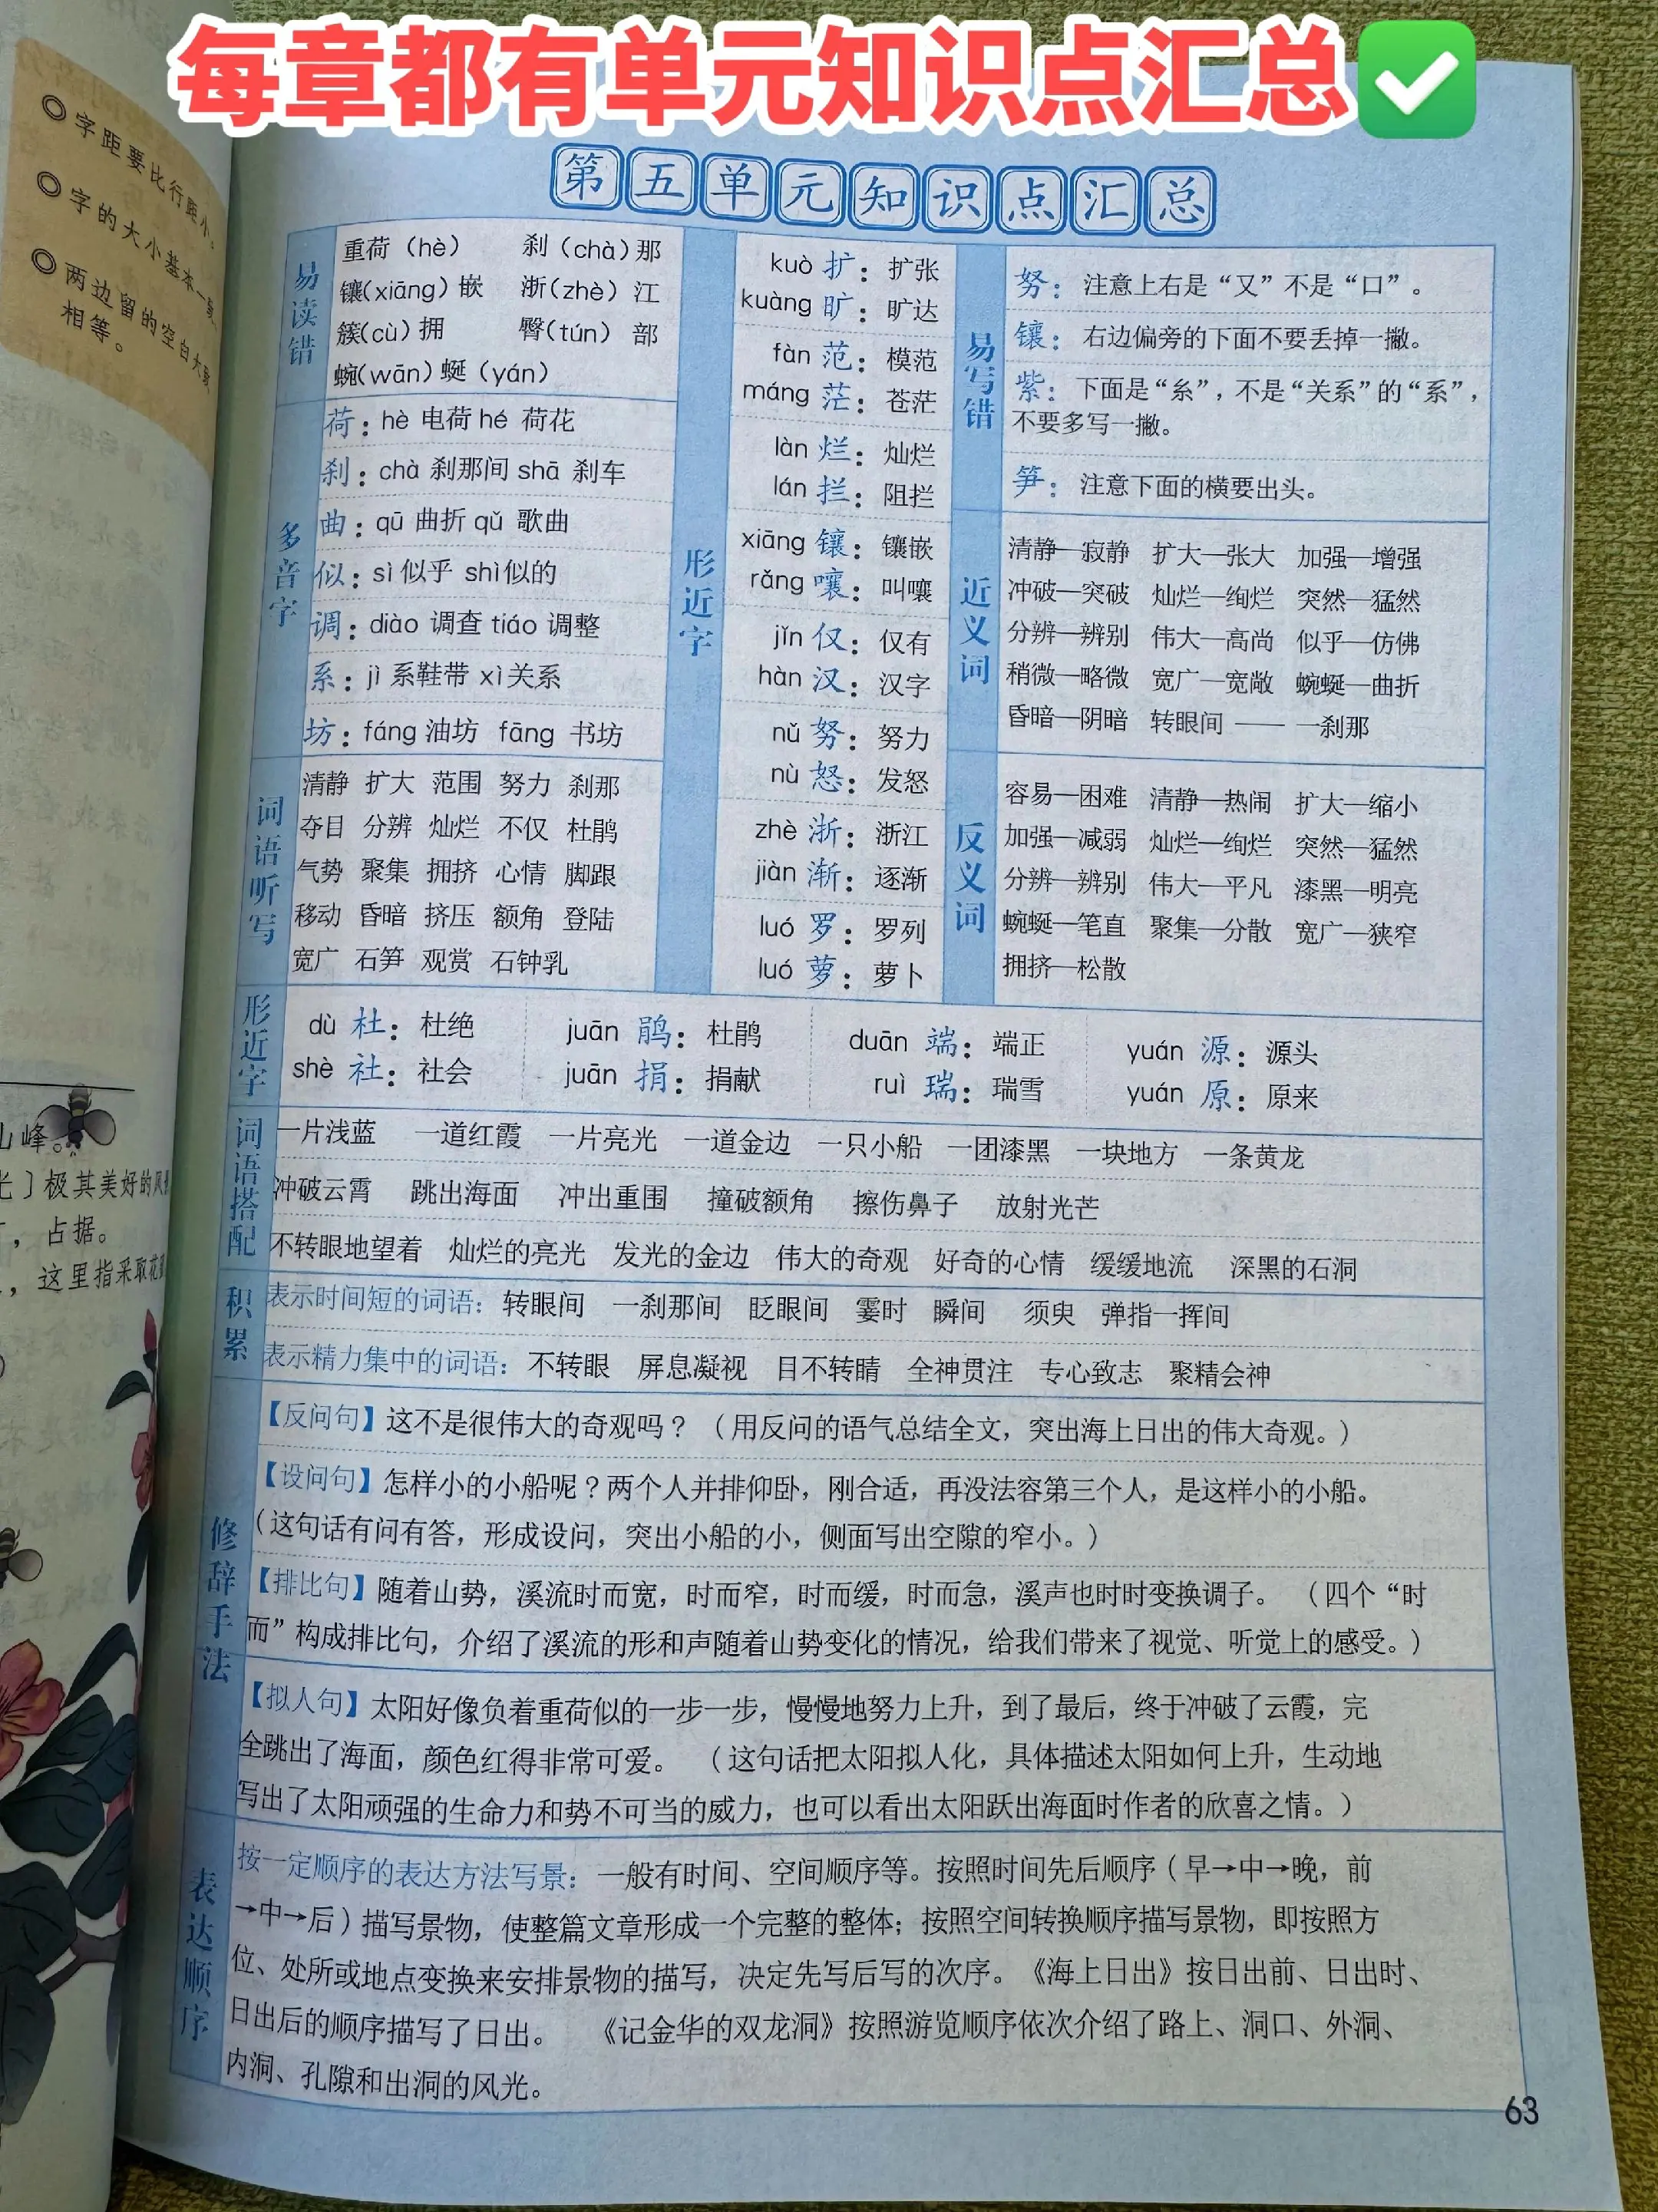 每章都有单元知识点汇总
字距要比行距小。
字的大小基本一致
两边留的空白大致
相等。
山峰。
光〕极其美好的风
,占据。
,这里指采取花
第五单元知识点汇总
易读错
重荷（hè） 刹（chà）那
镶(xiāng)嵌 浙(zhè)江
簇(cù)拥 臀(tún)部
蜿(wān)蜒（yán）
多音字
荷：hè 电荷 hé 荷花
刹：chà 刹那间 shā 刹车
曲：qū 曲折 qǔ 歌曲
似：sì 似乎 shì似的
调：diào 调查 tiáo 调整
系：jì 系鞋带 xì关系
坊：fáng 油坊 fāng 书坊
词语听写
清静 扩大 范围 努力 刹那
夺目 分辨 灿烂 不仅 杜鹃
气势 聚集 拥挤 心情 脚跟
移动 昏暗 挤压 额角 登陆
宽广 石笋 观赏 石钟乳
形近字
kuò 扩：扩张
kuàng 旷：旷达
fàn 范：模范
máng 茫：苍茫
làn 烂：灿烂
lán 拦：阻拦
xiāng 镶：镶嵌
rǎng 嚷：叫嚷
jǐn 仅：仅有
hàn 汉：汉字
nǔ 努：努力
nù 怒：发怒
zhè 浙：浙江
jiàn 渐：逐渐
luó 罗：罗列
luó 萝：萝卜
易写错
努：注意上右是“又”不是“口”。
镶：右边偏旁的下面不要丢掉一撇。
紫：下面是“糸”，不是“关系”的“系”，
不要多写一撇。
笋：注意下面的横要出头。
近义词
清静—寂静 扩大—张大 加强—增强
冲破—突破 灿烂—绚烂 突然—猛然
分辨—辨别 伟大—高尚 似乎—仿佛
稍微—略微 宽广—宽敞 蜿蜒—曲折
昏暗—阴暗 转眼间 —— 一刹那
反义词
容易—困难 清静—热闹 扩大—缩小
加强—减弱 灿烂—绚烂 突然—猛然
分辨—辨别 伟大—平凡 漆黑—明亮
蜿蜒—笔直 聚集—分散 宽广—狭窄
拥挤—松散
形近字
dù 杜：杜绝 juān 鹃：杜鹃 duān 端：端正 yuán 源：源头
shè 社：社会 juān 捐：捐献 ruì 瑞：瑞雪 yuán 原：原来
词语搭配
一片浅蓝 一道红霞 一片亮光 一道金边 一只小船 一团漆黑 一块地方 一条黄龙
冲破云霄 跳出海面 冲出重围 撞破额角 擦伤鼻子 放射光芒
不转眼地望着 灿烂的亮光 发光的金边 伟大的奇观 好奇的心情 缓缓地流 深黑的石洞
积累
表示时间短的词语：转眼间 一刹那间 眨眼间 霎时 瞬间 须臾 弹指一挥间
表示精力集中的词语：不转眼 屏息凝视 目不转睛 全神贯注 专心致志 聚精会神
修辞手法
【反问句】这不是很伟大的奇观吗？（用反问的语气总结全文，突出海上日出的伟大奇观。）
【设问句】怎样小的小船呢？两个人并排仰卧，刚合适，再没法容第三个人，是这样小的小船。
（这句话有问有答，形成设问，突出小船的小，侧面写出空隙的窄小。）
【排比句】随着山势，溪流时而宽，时而窄，时而缓，时而急，溪声也时时变换调子。（四个“时
而”构成排比句，介绍了溪流的形和声随着山势变化的情况，给我们带来了视觉、听觉上的感受。）
【拟人句】太阳好像负着重荷似的一步一步，慢慢地努力上升，到了最后，终于冲破了云霞，完
全跳出了海面，颜色红得非常可爱。（这句话把太阳拟人化，具体描述太阳如何上升，生动地
写出了太阳顽强的生命力和势不可当的威力，也可以看出太阳跃出海面时作者的欣喜之情。）
表达顺序
按一定顺序的表达方法写景：一般有时间、空间顺序等。按照时间先后顺序（早→中→晚，前
→中→后）描写景物，使整篇文章形成一个完整的整体；按照空间转换顺序描写景物，即按照方
位、处所或地点变换来安排景物的描写，决定先写后写的次序。《海上日出》按日出前、日出时、
日出后的顺序描写了日出。 《记金华的双龙洞》按照游览顺序依次介绍了路上、洞口、外洞、
内洞、孔隙和出洞的风光。
63